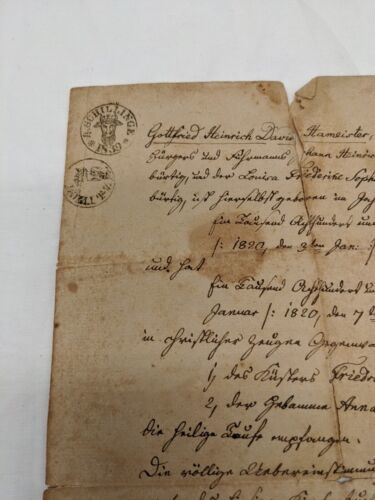 8. SCHILLINGE
1849
Gottfried Heinrich David Hameister,
Bürgers und Fuhrmanns Johann Heinrich
bürtig, und der Louisa Friederike Soph
bürtig, ist hierselbst geboren im Jah
Ein Tausend Achthundert und
/: 1820, den 3ten Jan: :/
und hat
Ein Tausend Achthundert
Januar /: 1820, den 7
in christlicher Zeugen Gegenwa
1, des Küsters Friedr
2, der Hebamme Anna
die heilige Taufe empfangen.
Die völlige Uebereinstimmu